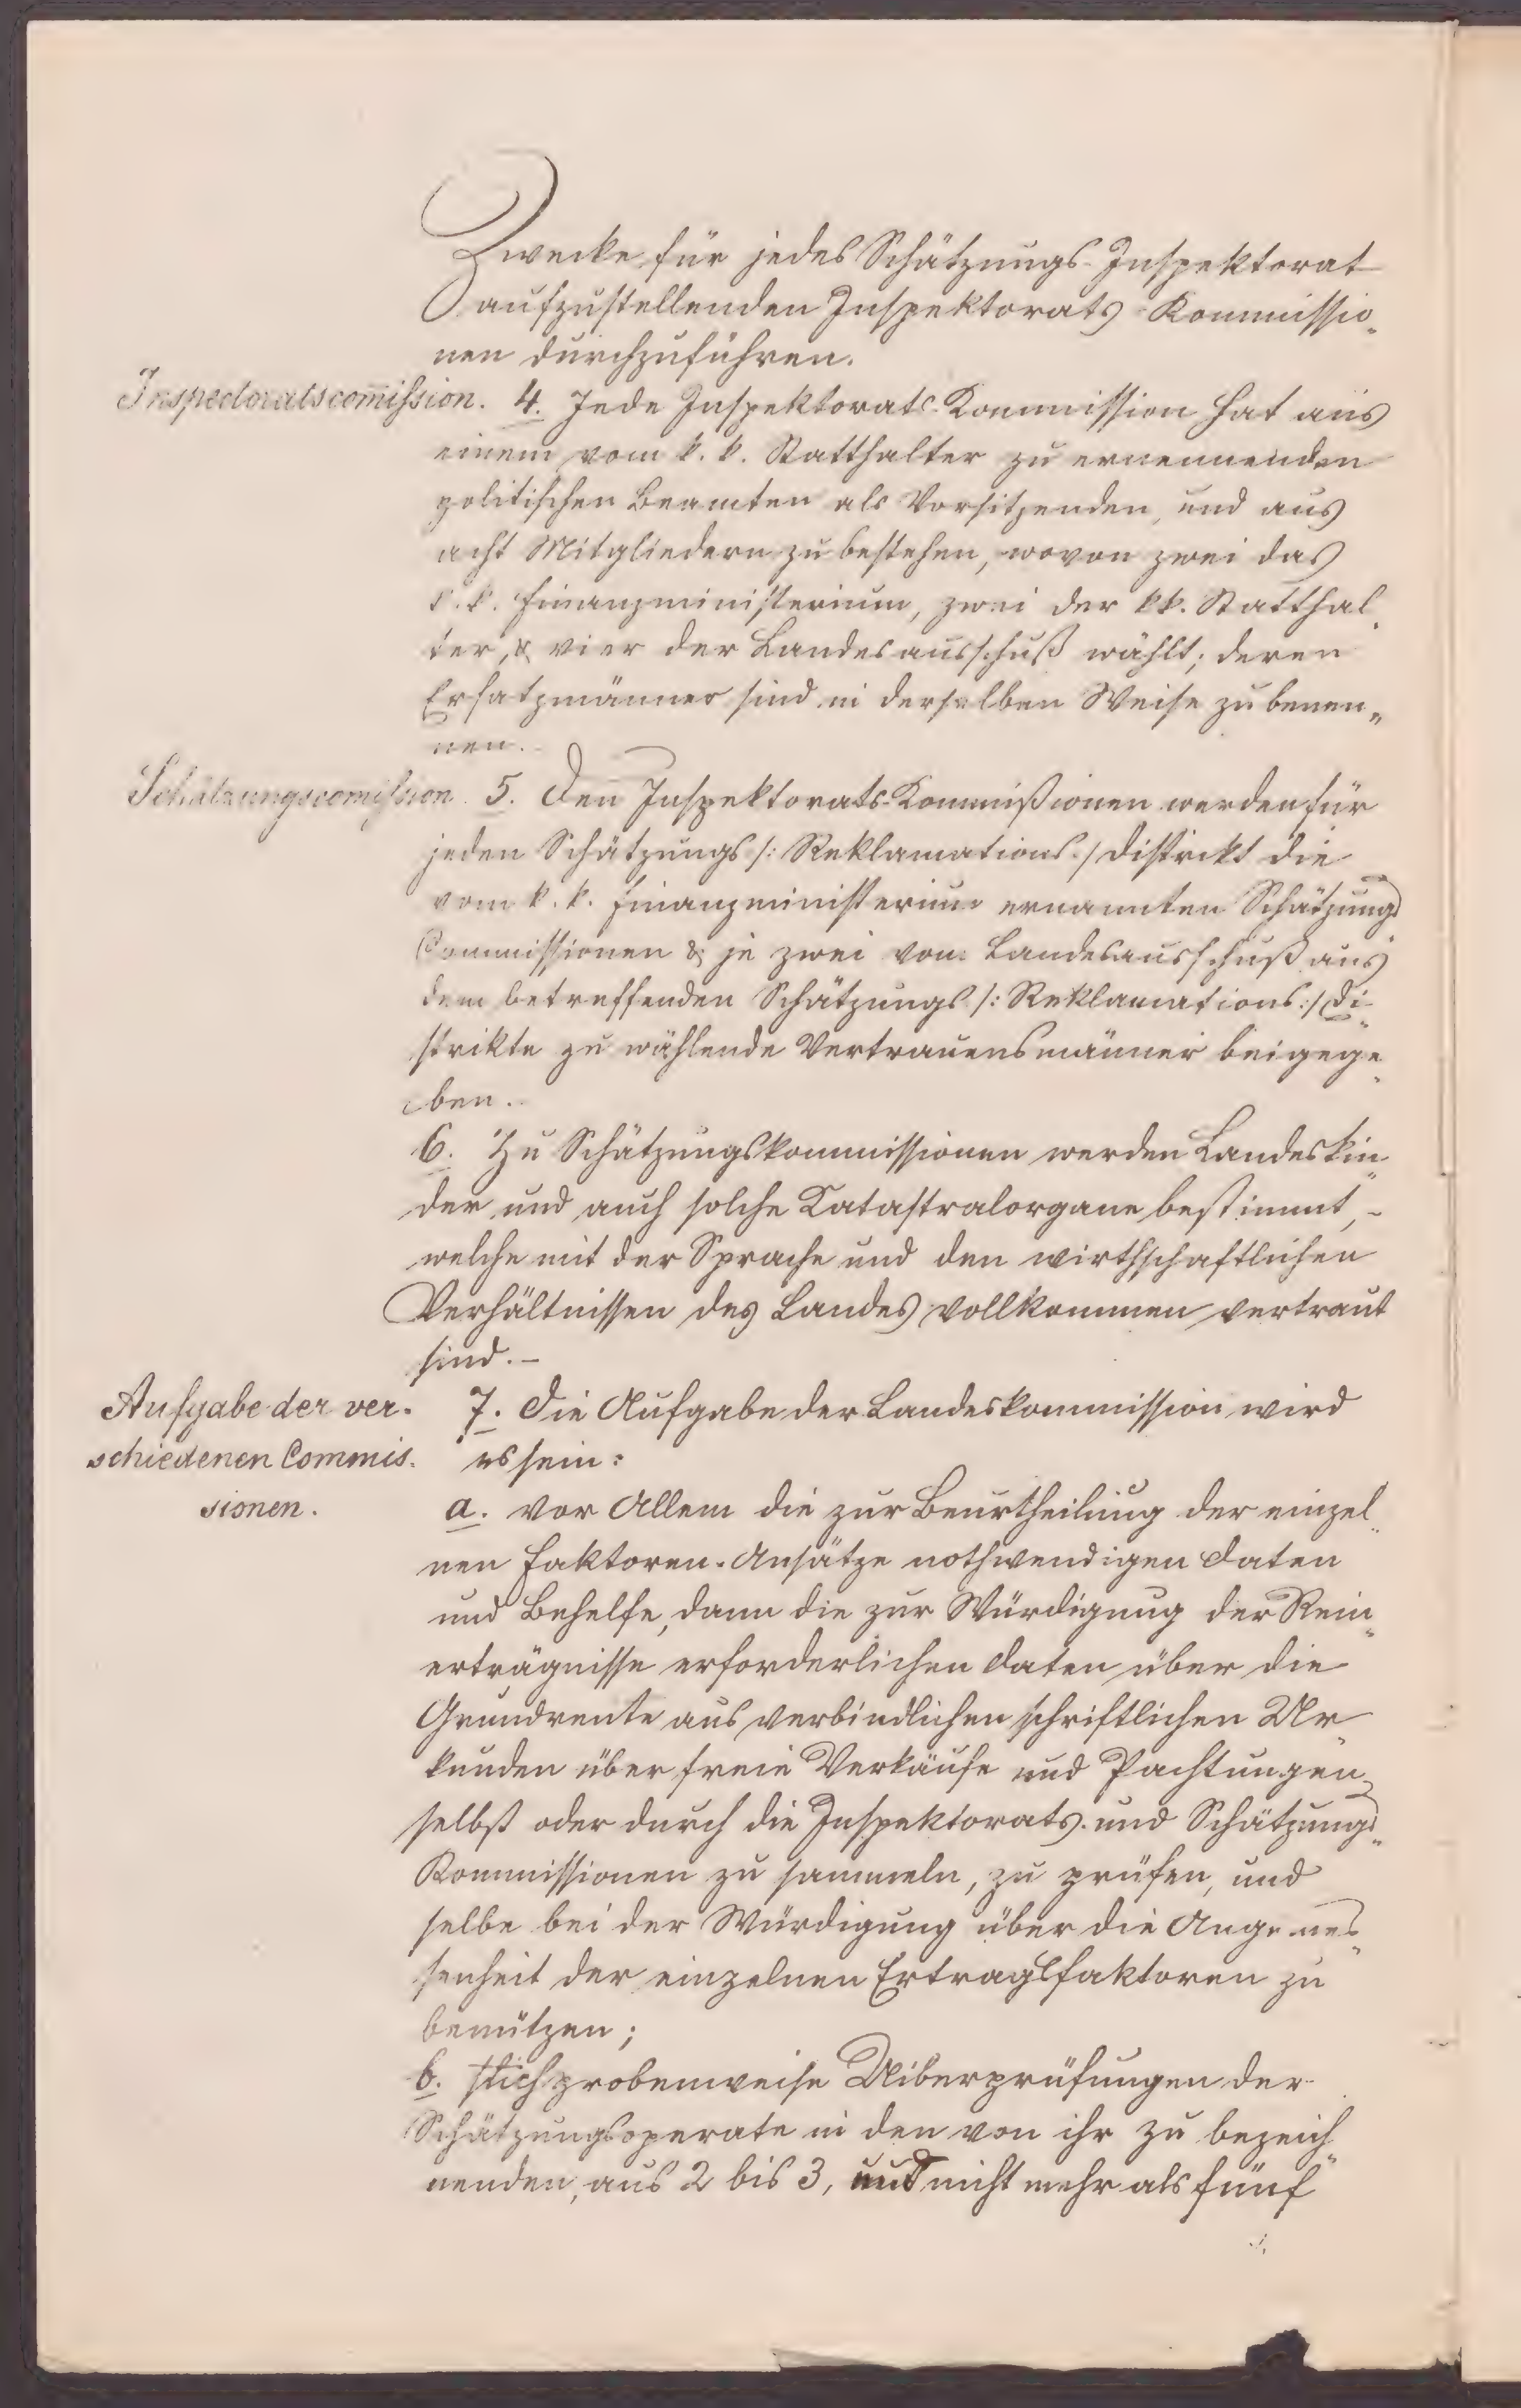 Zwecke für jedes Schätzungs-Inspektorat
aufzustellenden Inspektorats-Kommissio„
nen durchzuführen.
Inspectoratscom̄ission. 4. Jede Inspektorats-Kommission hat aus
einem vom k. k. Statthalter zu ernennenden
politischen Beamten als Vorsitzenden, und aus
acht Mitgliedern zu bestehen, wovon zwei das
k. k. Finanzministerium, zwei der kk. Statthal„
ter, & vier der Landesausschuß wählt; deren
Ersatzmänner sind in derselben Weise zu benen„
nen.
Schätzungscom̄ission. 5. Den Inspektorats-Kommißionen werden für
jeden Schätzungs /: Reklamations :/ Distrikt die
vom k. k. Finanzministerium ernannten Schätzungs
Commissionen & je zwei vom Landesausschuß aus
dem betreffenden Schätzungs /: Reklamations :/ Di„
strikte zu wählende Vertrauensmänner beigege„
ben.
6. Zu Schätzungskommissionen werden Landeskin„
der und auch solche Katastralorgane bestimmt, –
welche mit der Sprache und den wirthschaftlichen
Verhältnissen des Landes vollkommen vertraut
sind. –
Aufgabe der ver- 7. Die Aufgabe der Landeskommission wird
schiedenen Commis- es sein:
sionen. a. vor Allem die zur Beurtheilung der einzel„
nen Faktoren-Ansätze nothwendigen Daten
und Behelfe, dann die zur Würdigung der Rein„
erträgnisse erforderlichen Daten über die
Grundrente aus verbindlichen schriftlichen Ur„
kunden über freie Verkäufe und Pachtungen
selbst oder durch die Inspektorats- und Schätzungs„
Kommissionen zu sammeln, zu prüfen, und
selbe bei der Würdigung über die Angemes„
senheit der einzelnen Ertragsfaktoren zu
benützen;
b. stichprobenweise Uiberprüfungen der
Schätzungsoperate in den von ihr zu bezeich„
nenden, aus 2 bis 3, und nicht mehr als fünf